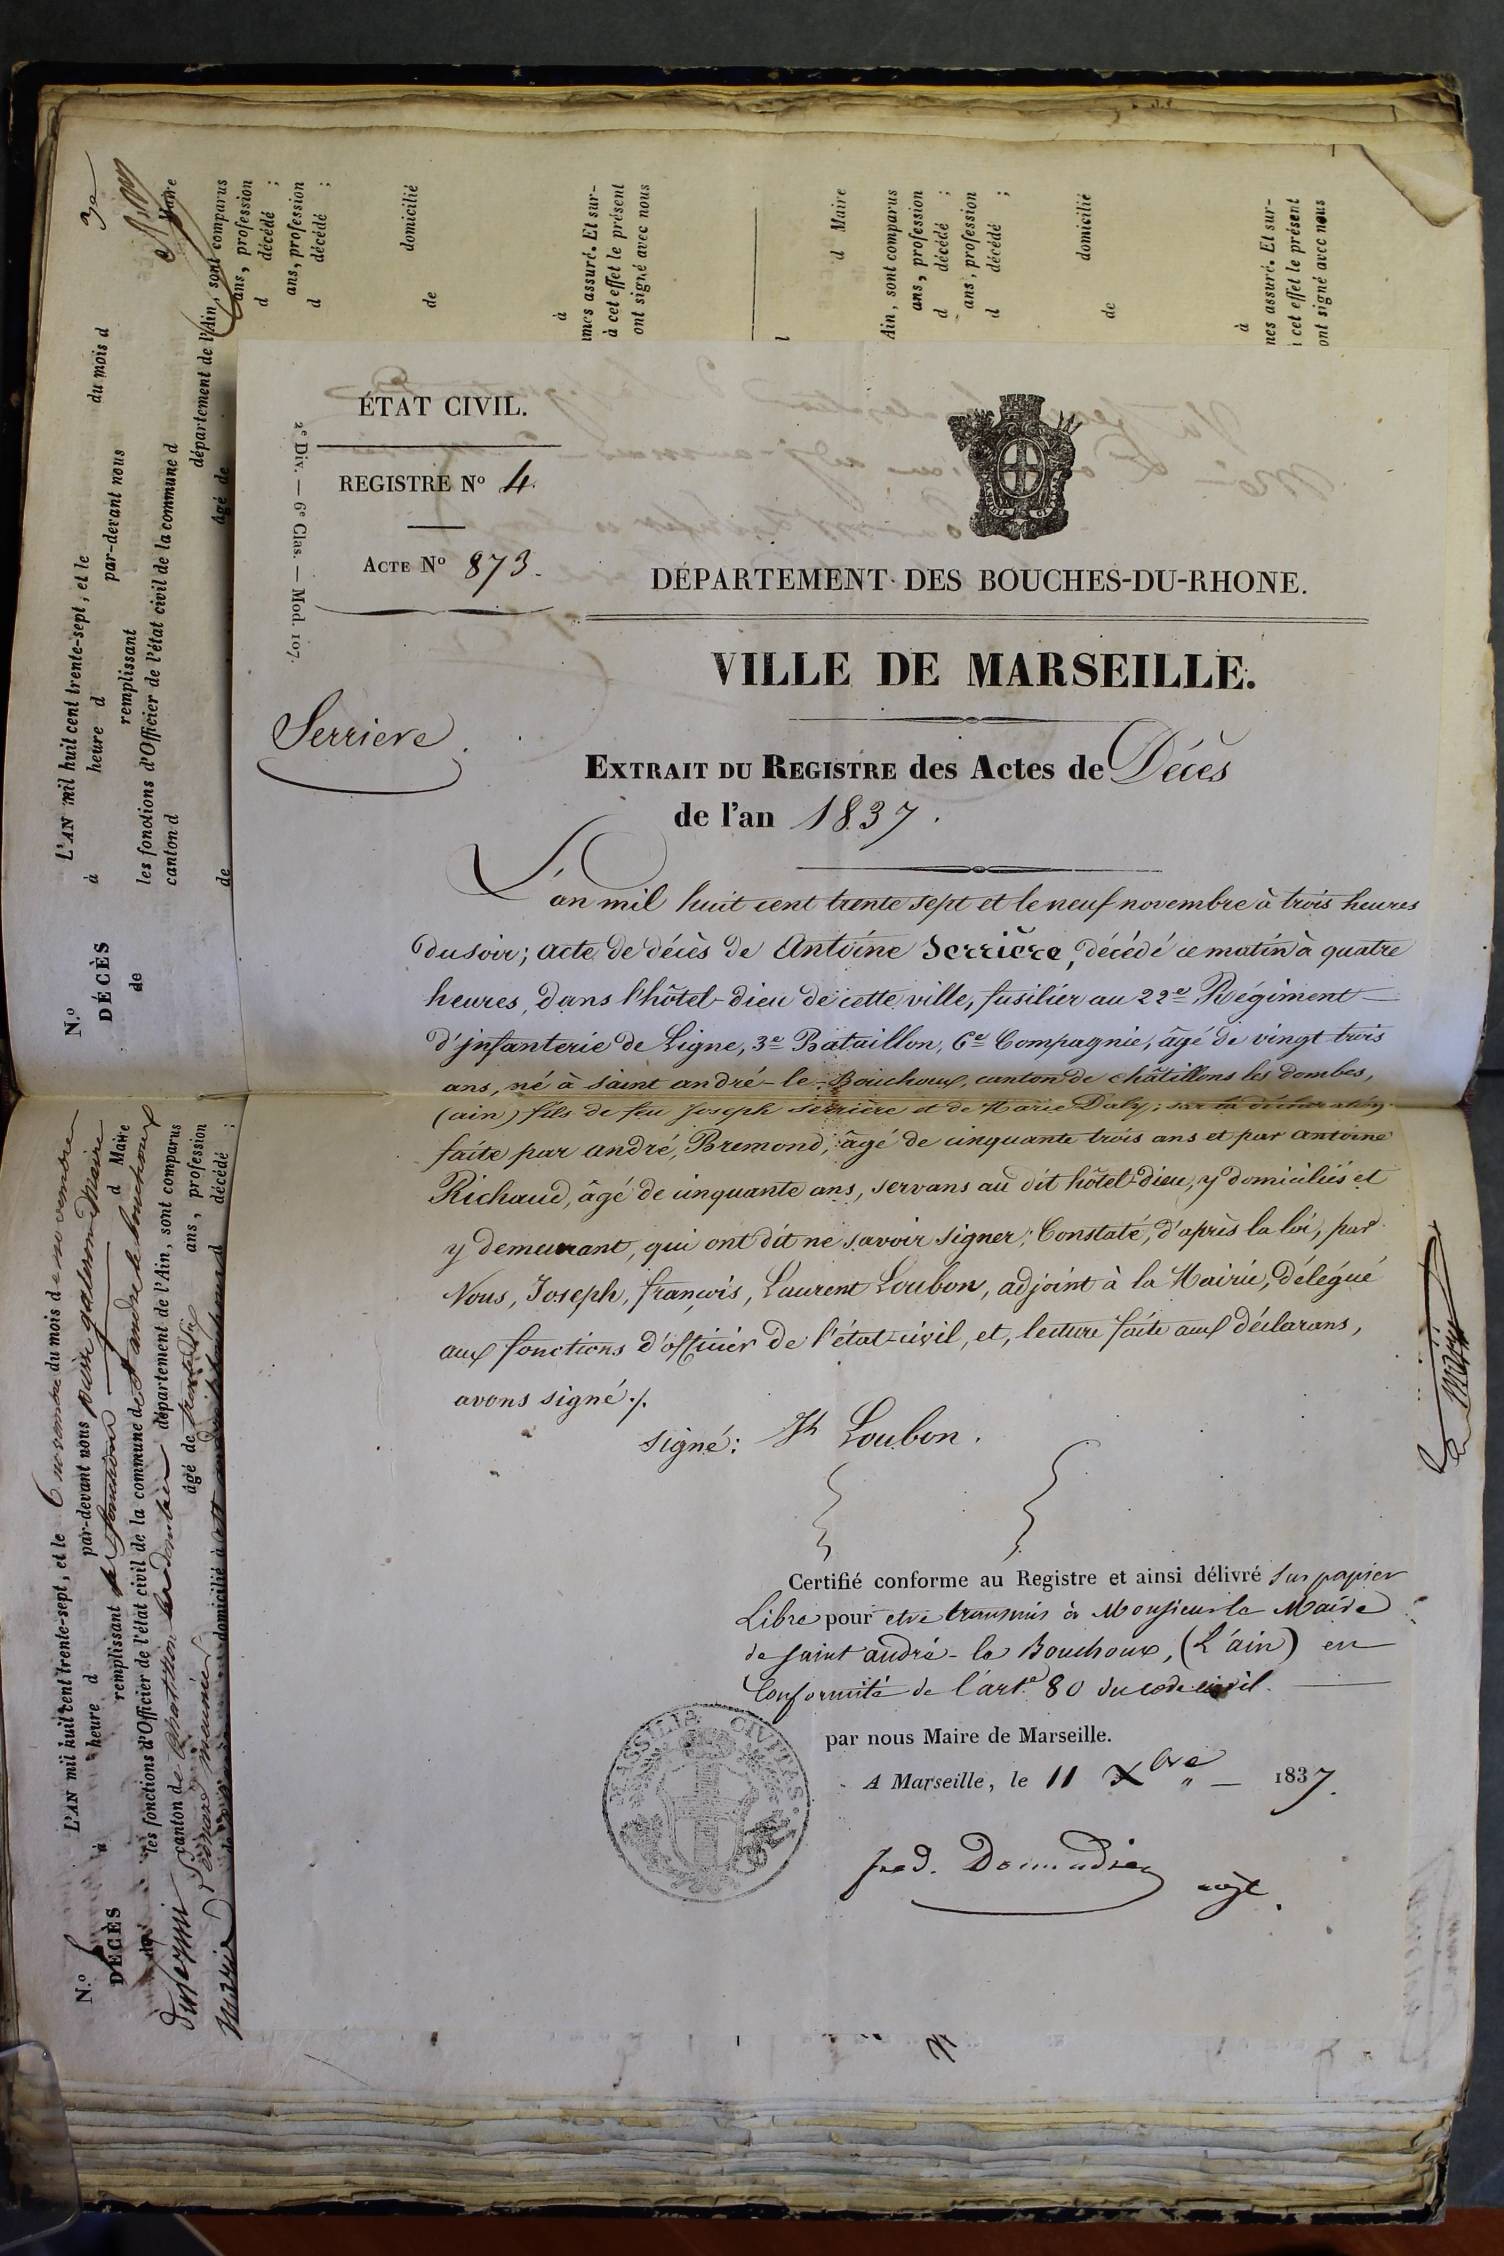 ÉTAT CIVIL.
REGISTRE Nº 4.
ACTE Nº 873.
2e Div. — 6e Clas. — Mod. 107.
DÉPARTEMENT DES BOUCHES-DU-RHONE.
VILLE DE MARSEILLE.
Serriere.
EXTRAIT DU REGISTRE des Actes de Décès
de l'an 1837.
L'an mil huit cent trente sept et le neuf novembre à trois heures
du soir; acte de décès de Antoine Serrière, décédé ce matin à quatre
heures, dans l'hôtel-dieu de cette ville, fusilier au 22e Régiment
d'jnfanterie de Ligne, 3e Bataillon, 6e Compagnie, âgé de vingt trois
ans, né à saint andré-le-Bouchoux, canton de châtillons les dombes,
(ain) fils de feu Joseph serrière et de Marie Daly; sur la déclaration
faite par andré, Bremond, âgé de cinquante trois ans et par antoine
Richaud, âgé de cinquante ans, servans au dit hôtel-dieu, y domiciliés et
y demeurant, qui ont dit ne savoir signer; Constaté, d'après la loi, par
Nous, Joseph, françois, Laurent Loubon, adjoint à la Mairie, délégué
aux fonctions d'officier de l'état-civil, et, lecture faite aux déclarans,
avons signé./.
signé: Jh Loubon.
Certifié conforme au Registre et ainsi délivré sur papier
Libre pour etre transmis à Monsieur le Maire
de saint andré-le Bouchoux, (L'ain) en
Conformité de l'arte 80 du code civil.
par nous Maire de Marseille.
A Marseille, le 11 Xbre 1837.
MASSILIA CIVITAS
adjt.
N.º
DÉCÈS
de
L'AN mil huit cent trente-sept, et le du mois d
à heure d par-devant nous
remplissant
les fonctions d'Officier de l'état civil de la commune d
canton d département de l'Ain, sont comparus
de âgé de ans, profession
d décédé ;
ans, profession
d décédé ;
de domicilié
à
mes assuré. Et sur-
à cet effet le présent
ont signé avec nous
d Maire
Ain, sont comparus
ans, profession
d décédé ;
ans, profession
d décédé ;
de domicilié
à
nes assuré. Et sur-
à cet effet le présent
ont signé avec nous
N.º
DÉCÈS
L'AN mil huit cent trente-sept, et le 6 novembre du mois de novembre
à heure d par-devant nous
remplissant les fonctions d Maire
les fonctions d'Officier de l'état civil de la commune de St andre le bouchoux
canton de chatillon les dombes département de l'Ain, sont comparus
âgé de ans, profession
domicilié à décédé ;